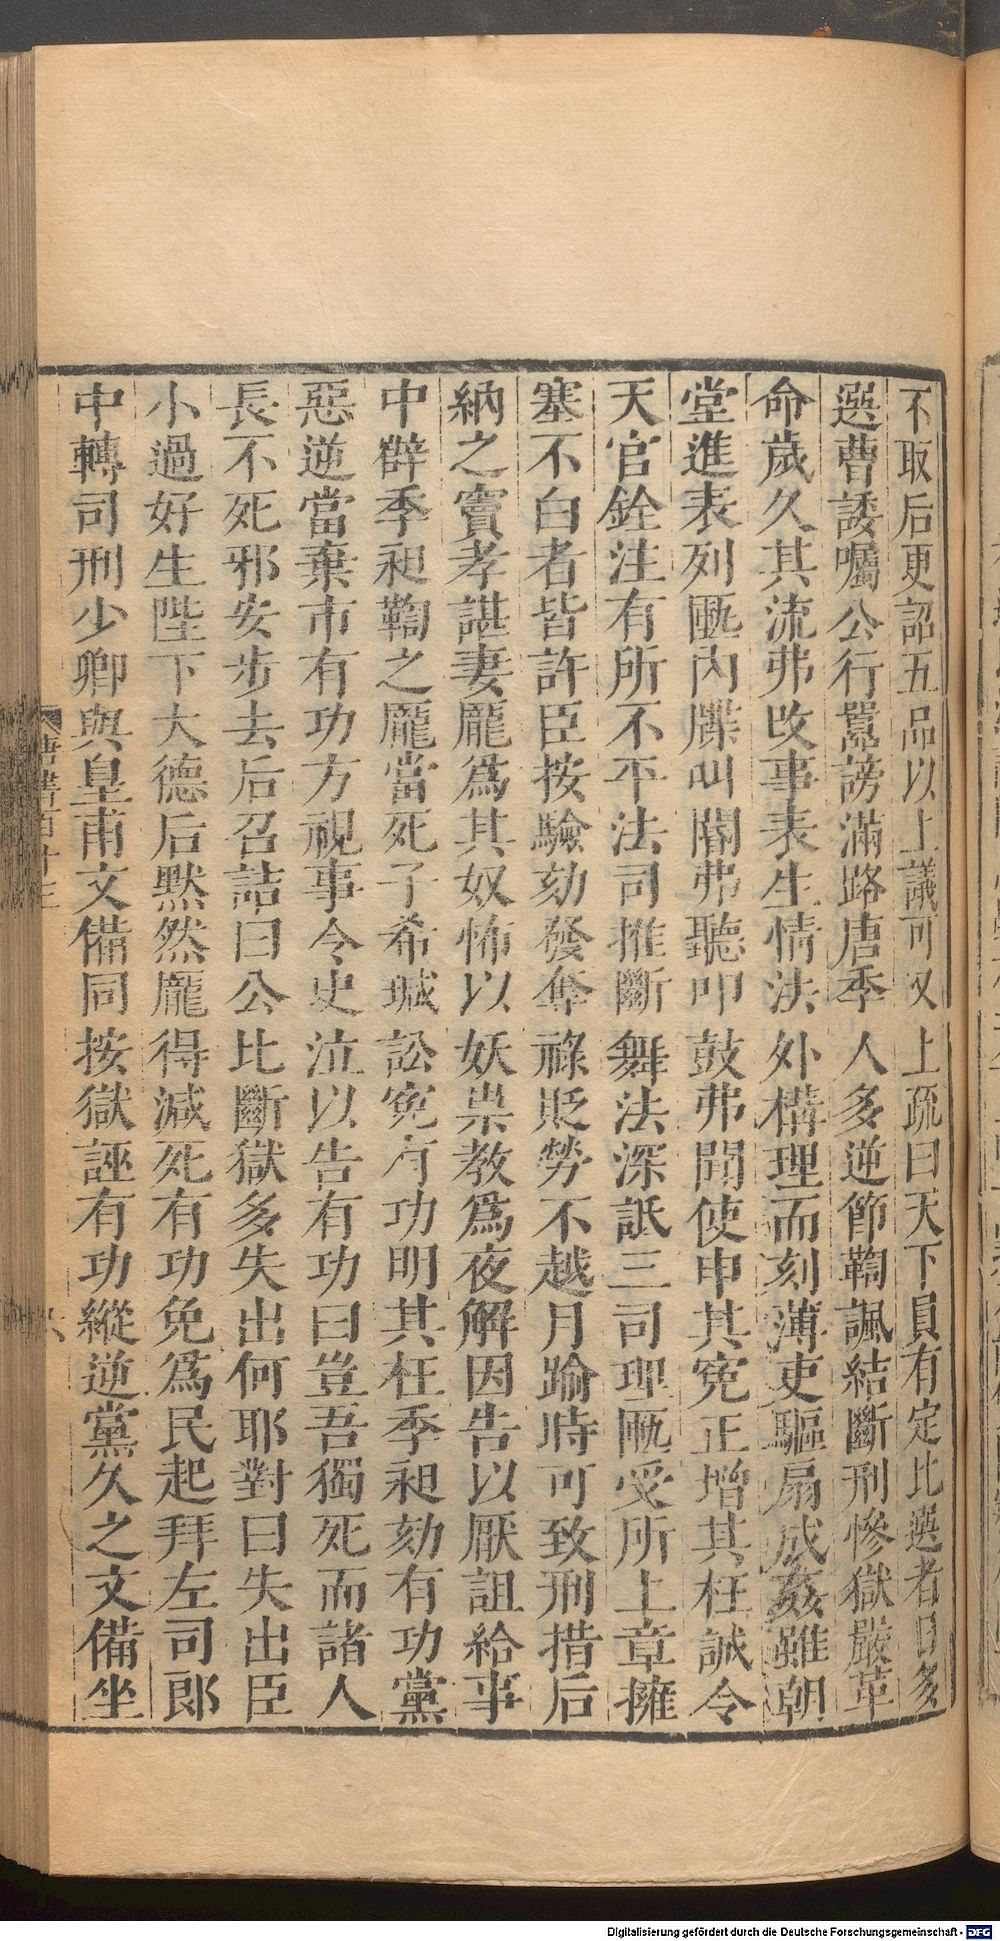 不取后更詔五品以上議可又上疏曰天下員有定比選者日多
選曹諉囑公行囂謗滿路唐季人多逆節鞫諷結斷刑慘獄嚴革
命歲久其流弗改事表生情法外構理而刻薄吏驅扇成姦雖朝
堂進表列匭內牒叫閽弗聽叩鼓弗聞使申其寃正增其枉誠令
天官銓注有所不平法司推斷舞法深詆三司理匭受所上章擁
塞不白者皆許臣按驗劾發奪祿貶勞不越月踰時可致刑措后
納之竇孝諶妻龐爲其奴怖以妖祟教爲夜解因告以厭詛給事
中薛季昶鞫之龐當死子希瑊訟寃有功明其枉季昶劾有功黨
惡逆當棄市有功方視事令史泣以告有功曰豈吾獨死而諸人
長不死邪安步去后召詰曰公比斷獄多失出何耶對曰失出臣
小過好生陛下大德后默然龐得減死有功免爲民起拜左司郎
中轉司刑少卿與皇甫文備同按獄誣有功縱逆黨久之文備坐
唐書百十三
六
Digitalisierung gefördert durch die Deutsche Forschungsgemeinschaft - DFG